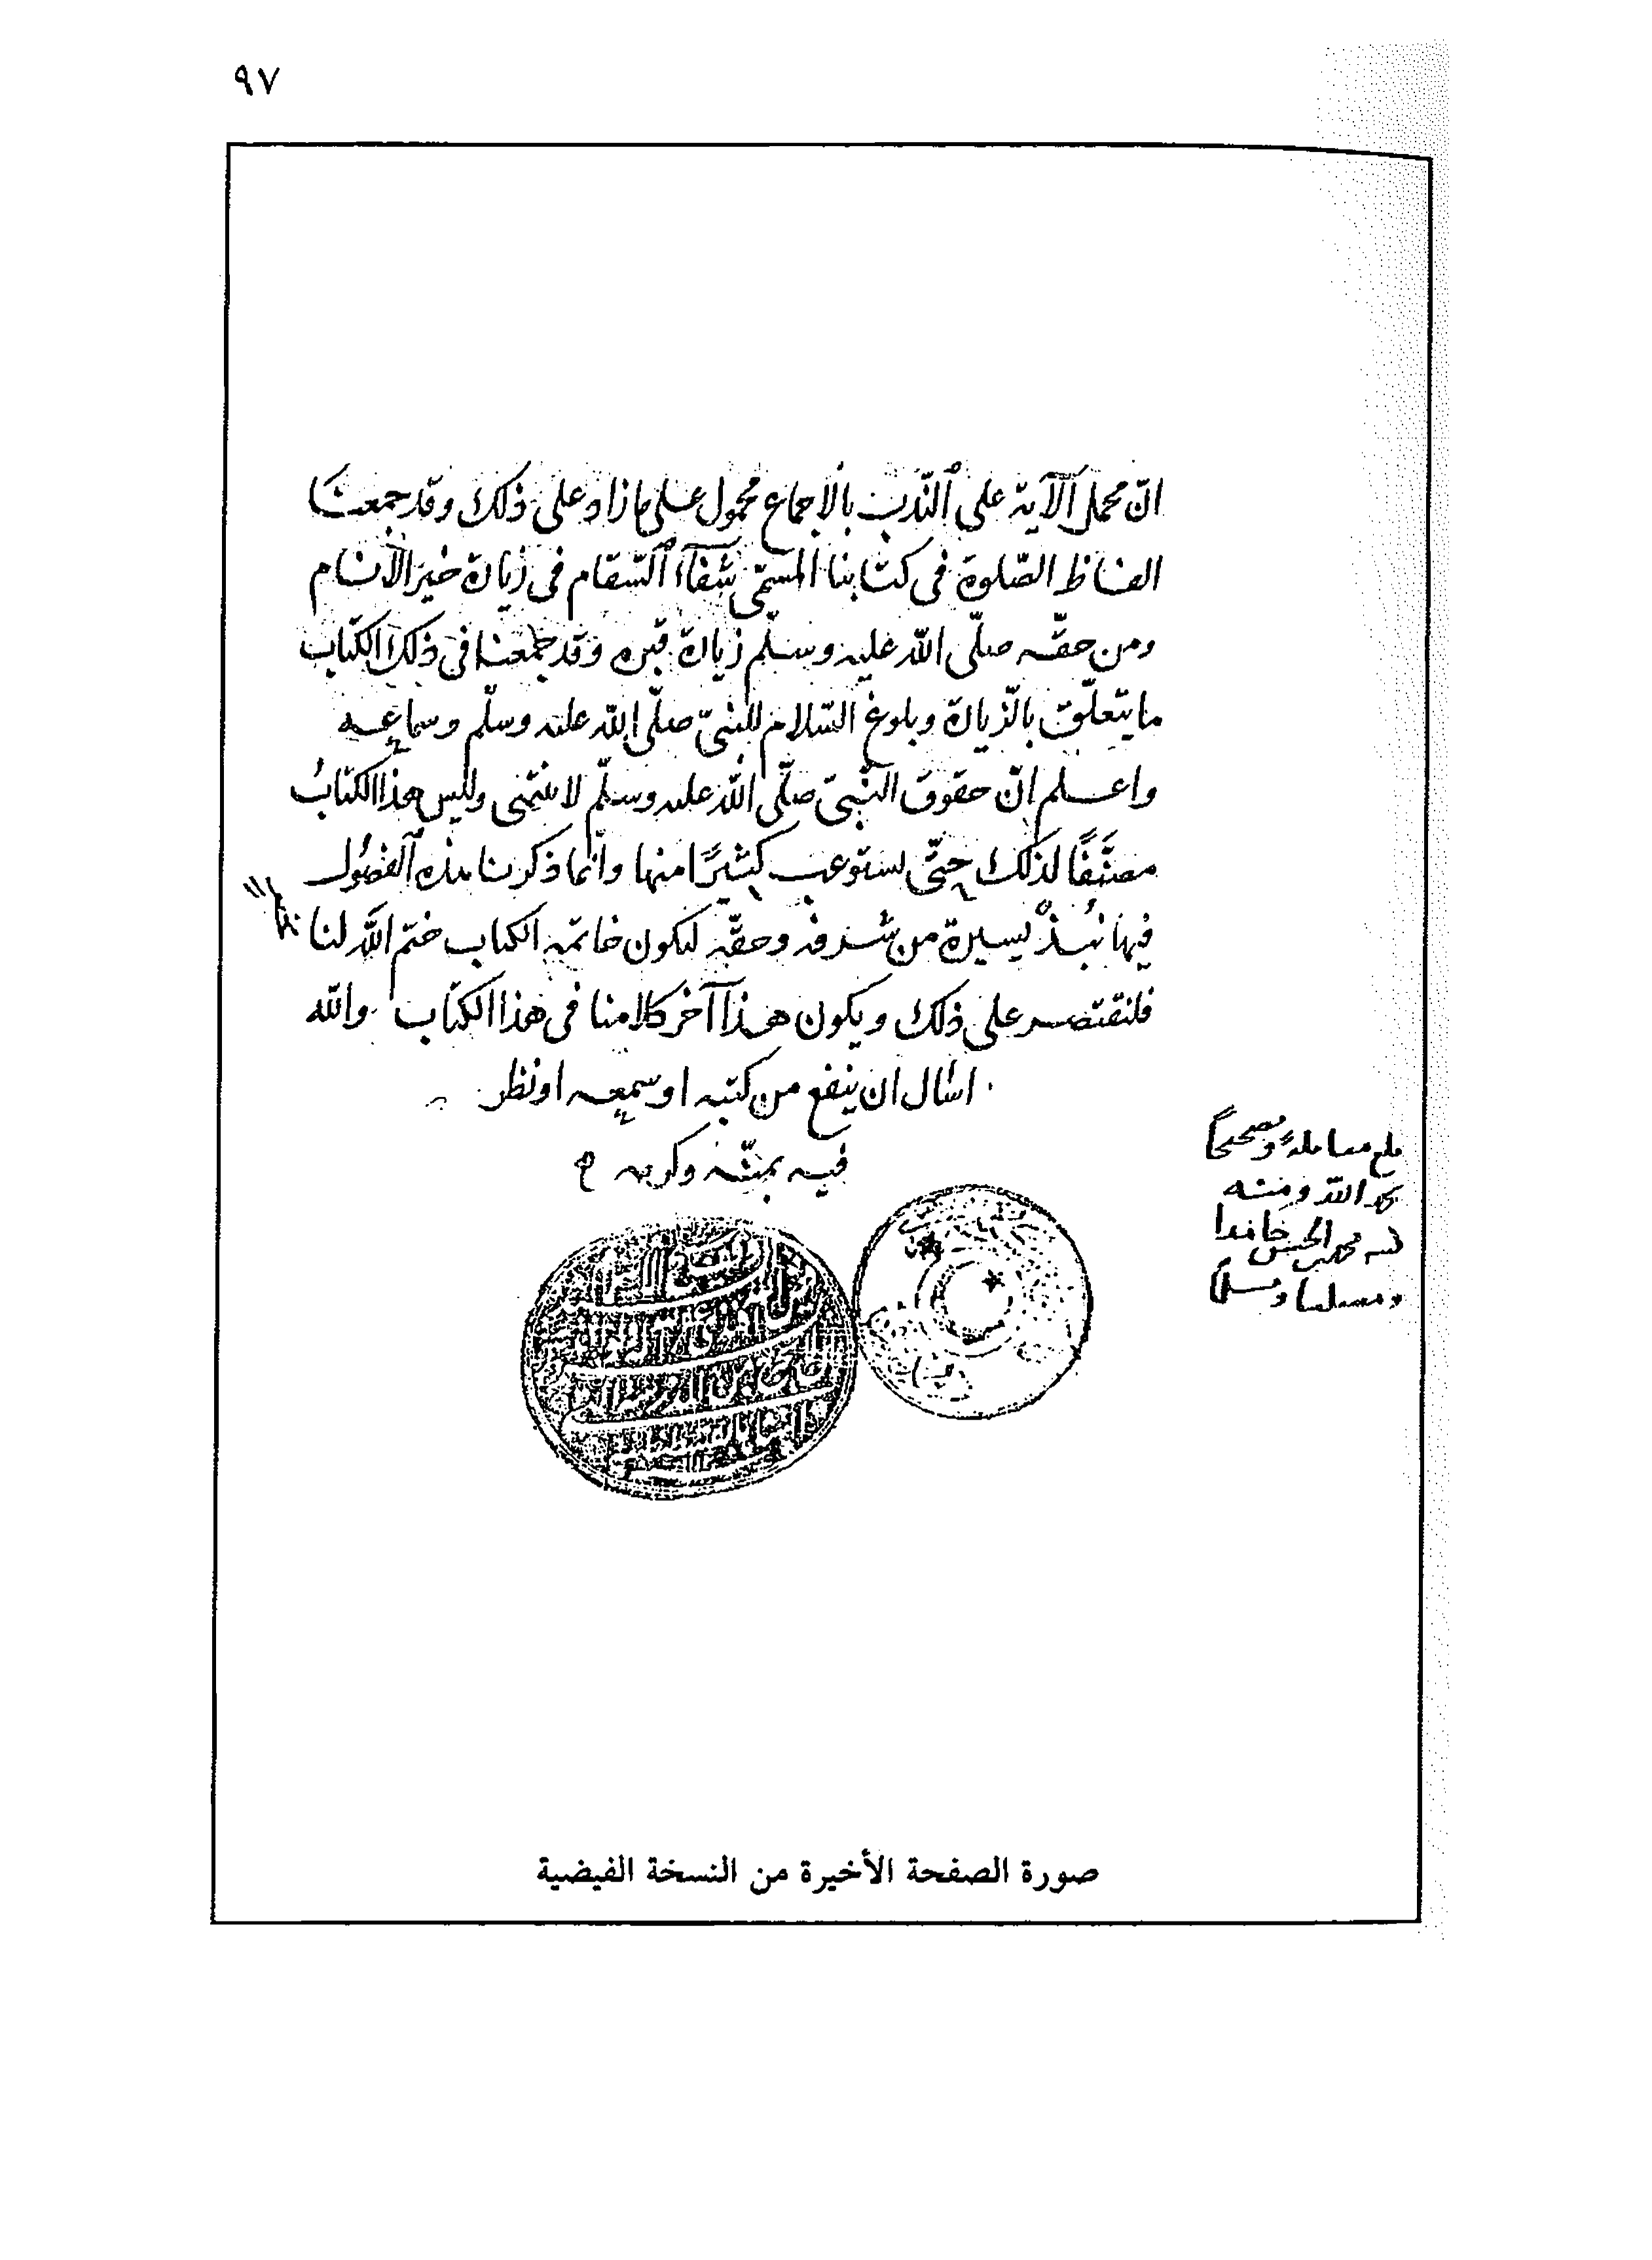 ٩٧
انّ محمل الآية على النّدب بالاجماع محمول على ما زاد على ذلك وقد جمعنا
الفاظ الصّلوة فى كتابنا المسمّى شفآء السّقام فى زيارة خير الأنام
ومن حقّه صلّى الله عليه وسلّم زيارة قبره وقد جمعنا فى ذلك الكتاب
ما يتعلّق بالزّيارة وبلوغ السّلام للنبىّ صلّى الله عليه وسلّم وسماعه
واعلم انّ حقوق النّبىّ صلّى الله عليه وسلّم لا تنتهى وليس هذا الكتابُ
مصنَّفًا لذلك حتّى يستوعب كثيرًا منها وانّما ذكرنا هذه الفصُول
فيها نُبذٌ يسيرة من شرفه وحقّه لتكون خاتمة الكتاب ختم اللَّه لنا بها
فلنقتصر على ذلك ويكون هذا آخر كلامنا فى هذا الكتاب والله
اسأل ان ينفع من كتبه او سمعه او نظر
فيه بمنّه وكرمه
بلغ مقابلةً وتصحيحًا
بحمد الله ومنّه
محمد
صورة الصفحة الأخيرة من النسخة الفيضية